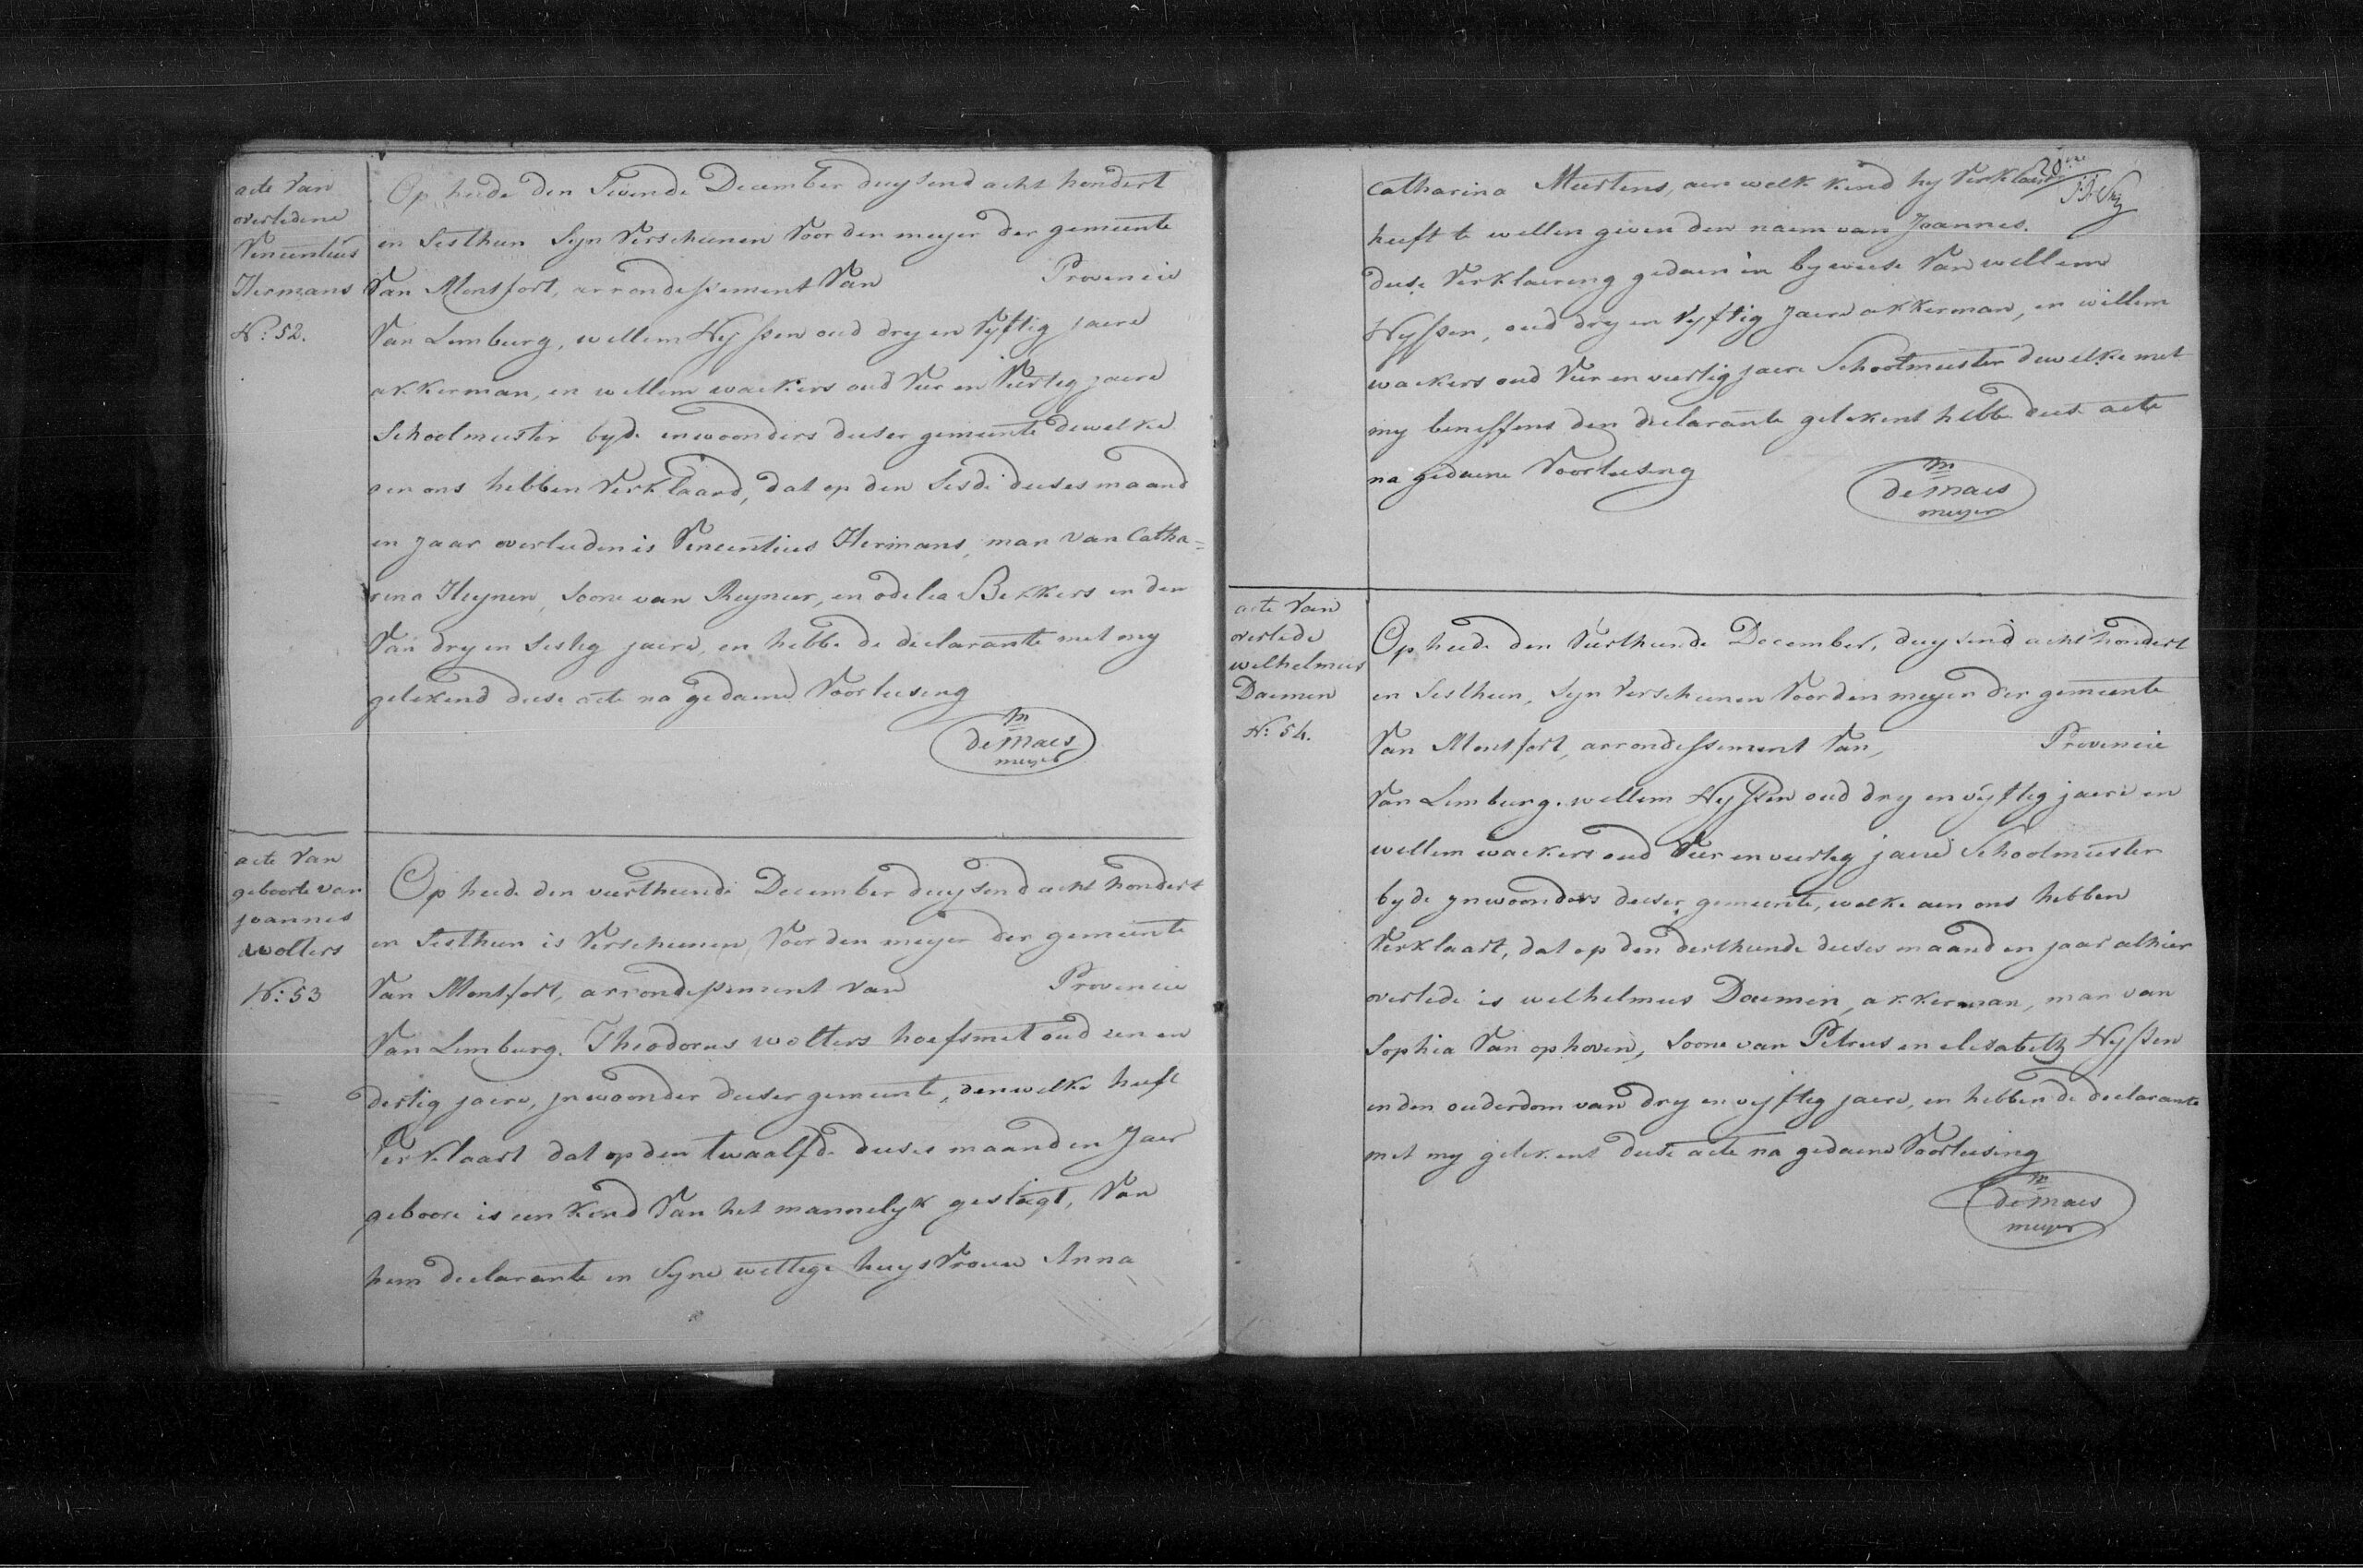 acte Van
overledene
Vincentius
Hermans
N: 52.
Op hede den Sevende December duysend acht hondert
en Sesthien Syn Verscheenen Voor den meyer der gemeente
Van Montfort, arrondissement Van Provincie
Van Limburg, willem Nyssen oud dry en Vyftig jaere
akkerman, en willem wackers oud Vier en Viertig jaere
Schoolmeester byde inwoonders deeser gemeente dewelke
aen ons hebben Verklaard, dat op den Sesde deeses maand
en jaar overleeden is Vincentius Hermans, man van Catha=
rina Heynen, Soone van Reyneer, en odelia Bekkers in den
Van dry en Sestig jaere, en hebbe de declarante met my
geteekend deese acte na gedaene Voorleesing
m
de Maes
meyer
acte Van
geboorte van
joannes
wolters
N: 53
Op heede den veerthiende December duysend acht hondert
en Sesthien is Verscheenen, Voor den meyer der gemeente
Van Montfort, arrondissement van Provincie
Van Limburg. Theodorus wolters hoefsmet oud een en
dertig jaere, jnwoonder deeser gemeente, denwelke heeft
Verklaart dat op den twaalfde deeses maand en Jaer
geboore is een Kind Van het mannelyk geslagt, Van
hem declarante en Syne wettige huysVrouw Anna
20me
catharina Meertens, aen welk kind hy Verklaart
heeft te willen geven den naem van Joannes.
deese Verklaering gedaen in byweese Van willem
Nyssen, oud dry en Vyftig Jaere akkerman, en willem
wackers oud Vier en veertig jaere Schoolmeester dewelke met
my beneffens den declarante geteekent hebbe deese acte
na gedaene Voorleesing
m
de Maes
meyer
acte Van
overlede
wilhelmus
Daemen
N: 54.
Op heede den Veerthiende December, duysend acht hondert
en Sesthien, Syn Verscheenen Voor den meyer der gemeente
Van Montfort, arrondissement Van, Provincie
Van Limburg. willem Nyssen oud dry en vyftig jaere en
willem wackers oud Vier en veertig jaere Schoolmeester
byde ynwoonders deeser gemeente, welke aen ons hebben
Verklaart, dat op den derthiende deeses maand en jaar alhier
overlede is wilhelmus Daemen, akkerman, man van
Sophia Van ophoven, Soone van Petrus en elisabeth Nyssen
in den ouderdom van dry en vyftig jaere, en hebben de declarante
met my geteekent deese acte na gedaene Voorleesing
m
de Maes
meyer